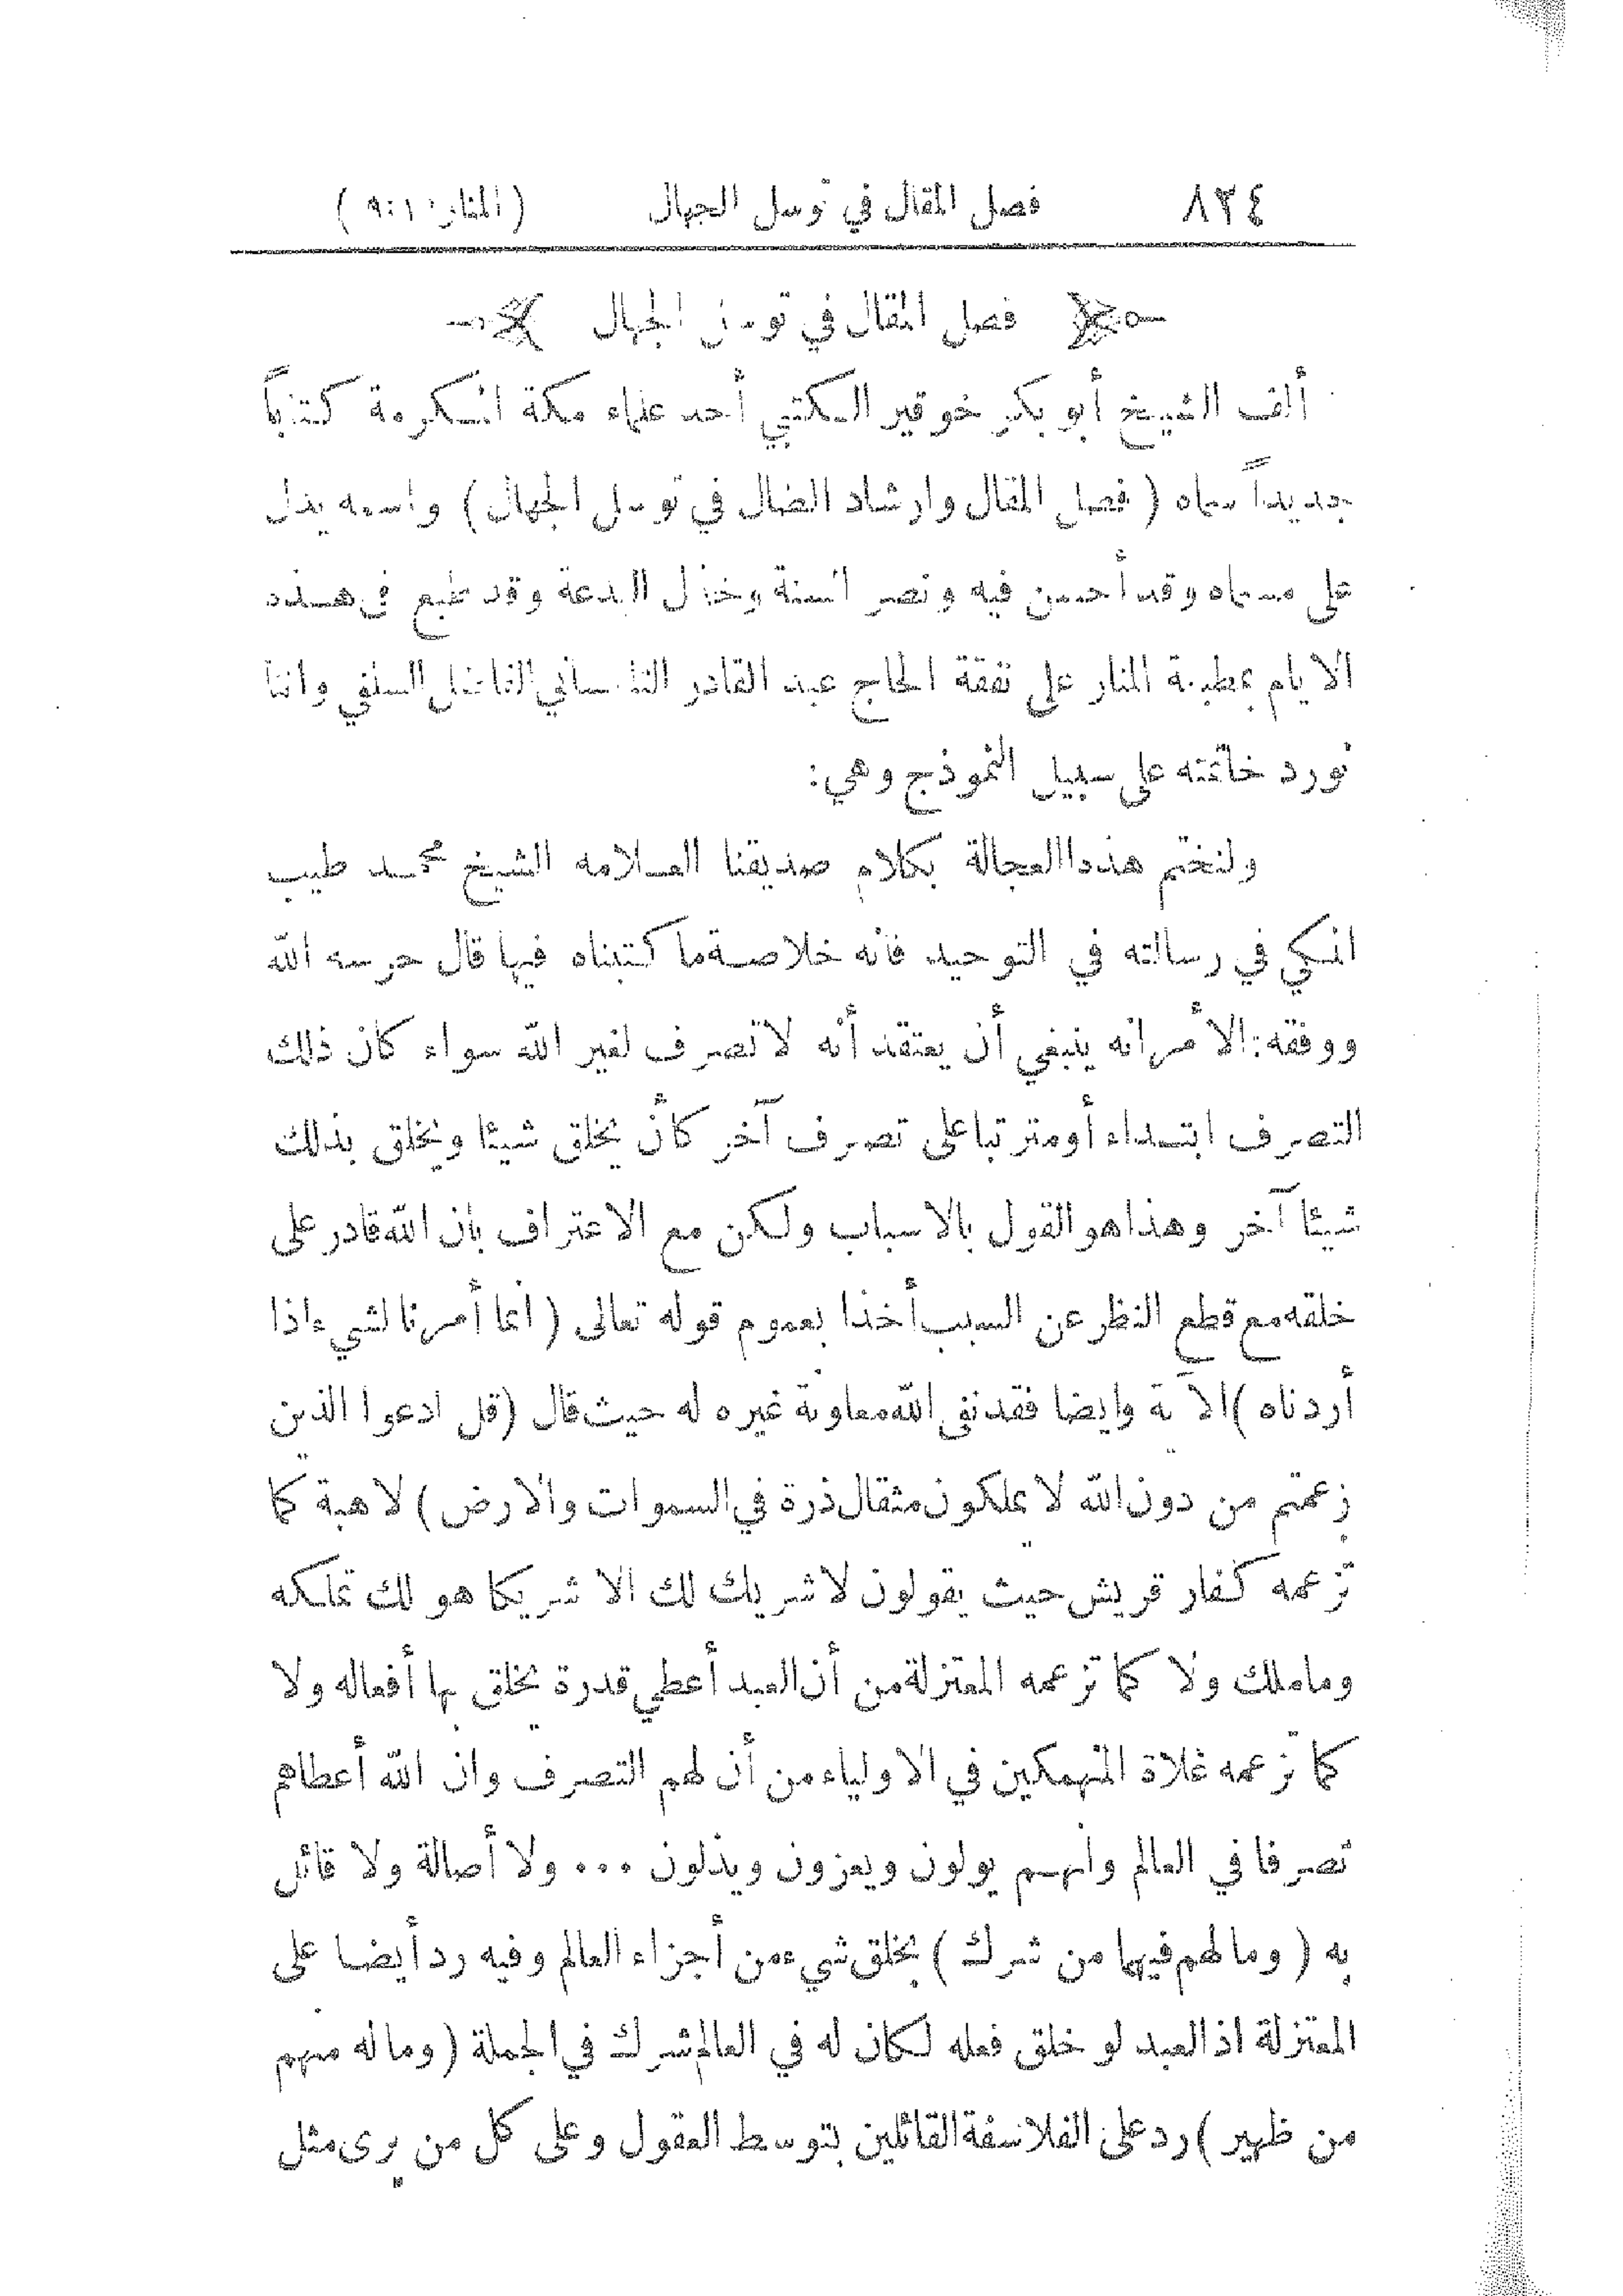 ٨٢٤ فصل المقال في توسل الجهال (المنار: ١٠: ٩)
فصل المقال في توسل الجهال
ألف الشيخ أبو بكر خوقير الكتبي أحد علماء مكة المكرمة كتاباً
جديداً سماه (فصل المقال وارشاد الضال في توسل الجهال) واسمه يدل
على مسماه وقد أحسن فيه ونصر السنة وخذل البدعة وقد طبع في هذه
الايام بمطبعة المنار على نفقة الحاج عبد القادر التلمساني الفاضل السلفي واننا
نورد خاتمته على سبيل النموذج وهي:
ولنختم هذه العجالة بكلام صديقنا العلامه الشيخ محمد طيب
المكي في رسالته في التوحيد فانه خلاصة ما كتبناه فيها قال حرسه الله
ووفقه: الأمر انه ينبغي أن يعتقد أنه لا تصرف لغير الله سواء كان ذلك
التصرف ابتداء أو مترتبا على تصرف آخر كأن يخلق شيئا ويخلق بذلك
شيئا آخر وهذا هو القول بالاسباب ولكن مع الاعتراف بأن الله قادر على
خلقه مع قطع النظر عن السبب أخذا بعموم قوله تعالى (انما أمرنا لشيء اذا
أردناه) الآية وايضا فقد نفى الله معاونة غيره له حيث قال (قل ادعوا الذين
زعمتم من دون الله لا يملكون مثقال ذرة في السموات والارض) لا هبة كما
تزعمه كفار قريش حيث يقولون لا شريك لك الا شريكا هو لك تملكه
وما ملك ولا كما تزعمه المعتزلة من أن العبد أعطي قدرة يخلق بها أفعاله ولا
كما تزعمه غلاة المنهمكين في الاولياء من أن لهم التصرف وان الله أعطاهم
تصرفا في العالم وانهم يولون ويعزون ويذلون ... ولا أصالة ولا قائل
به (وما لهم فيهما من شرك) بخلق شيء من أجزاء العالم وفيه رد أيضا على
المعتزلة اذ العبد لو خلق فعله لكان له في العالم شرك في الجملة (وما له منهم
من ظهير) رد على الفلاسفة القائلين بتوسط العقول وعلى كل من يرى مثل